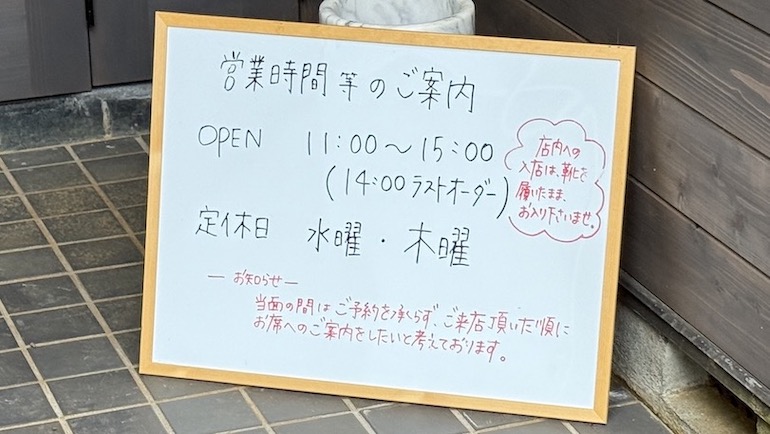 営業時間等のご案内
OPEN 11:00〜15:00
(14:00ラストオーダー)
店内への
入店は、靴を
履いたまま、
お入り下さいませ。
定休日 水曜・木曜
―お知らせ―
当面の間はご予約を承らず、ご来店頂いた順に
お席へのご案内をしたいと考えております。